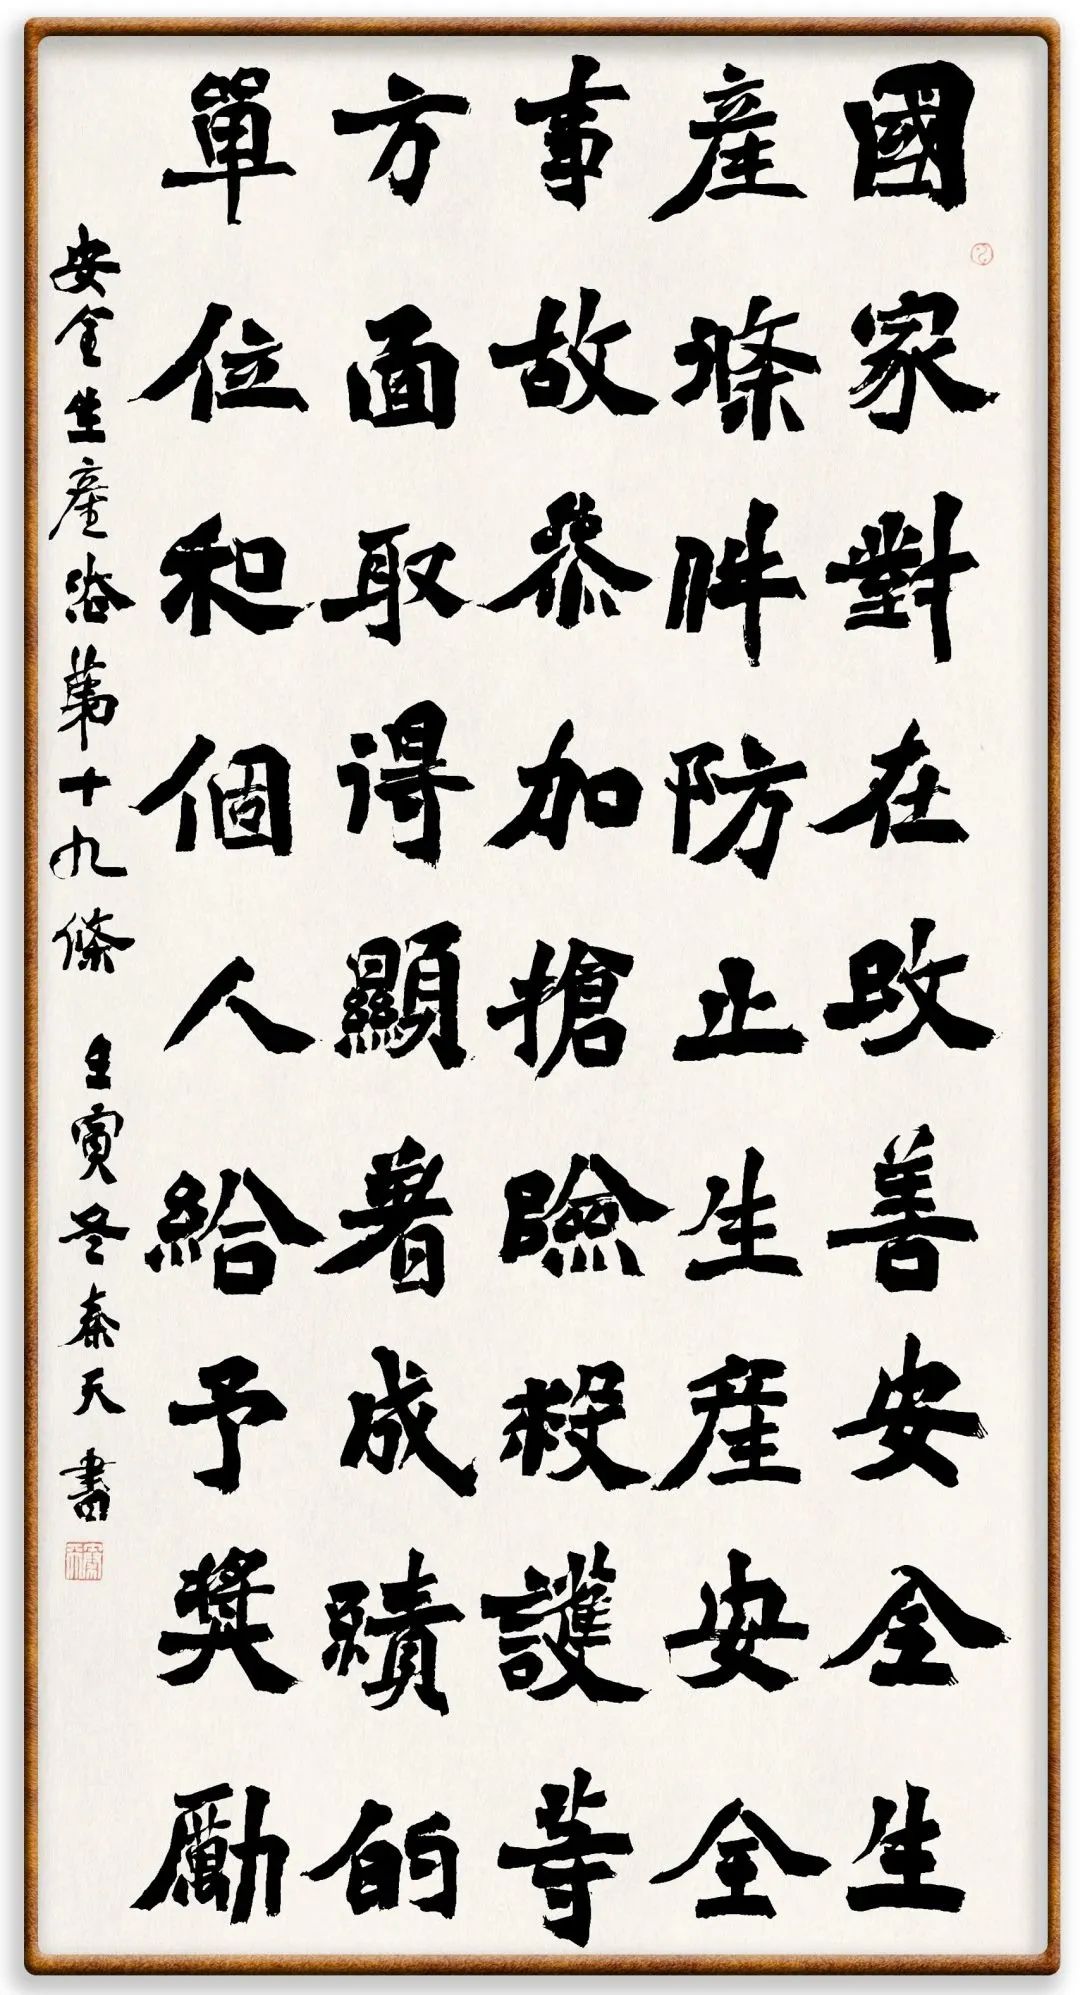 國家對在改善安全生
產條件防止生產安全
事故參加搶險救護等
方面取得顯著成績的
單位和個人給予獎勵
安全生產法第十九條 壬寅冬秦天書